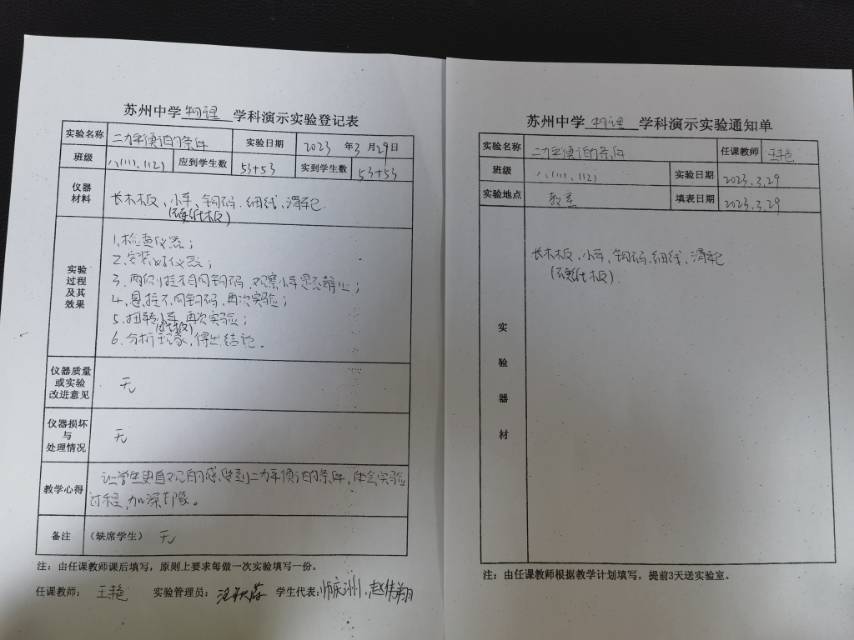 苏州中学 物理 学科演示实验登记表
实验名称 二力平衡的条件 实验日期 2023 年 3 月 29 日
班级 八(111, 112) 应到学生数 53+53 实到学生数 53+53
仪器材料 长木板、小车、钩码、细线、滑轮
(硬纸板)
实验过程及其效果
1、检查仪器;
2、安装好仪器;
3、两侧挂不同钩码,观察小车是否静止;
4、悬挂不同钩码,再次实验;
5、扭转小车,再次实验;
(纸板)
6、分析现象,得出结论。
仪器质量或实验改进意见 无
仪器损坏与处理情况 无
教学心得 让学生更直观的感受到二力平衡的条件,体会实验
过程,加深印象。
备注 (缺席学生) 无
注:由任课教师课后填写,原则上要求每做一次实验填写一份。
任课教师: 王艳 实验管理员: 学生代表:
苏州中学 物理 学科演示实验通知单
实验名称 二力平衡的条件 任课教师 王艳
班级 八(111, 112) 实验日期 2023.3.29
实验地点 教室 填表日期 2023.3.29
实验器材
长木板、小车、钩码、细线、滑轮
(硬纸板)
注:由任课教师根据教学计划填写,提前3天送实验室。